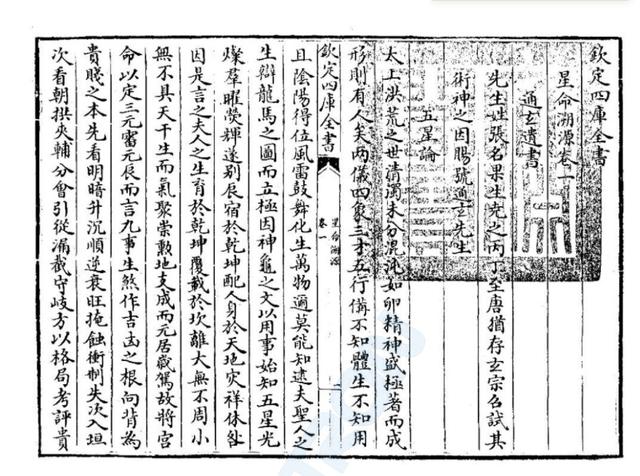 欽定四庫全書
星命溯源卷一
通玄遺書
先生姓張名果生堯之丙丁至唐猶存玄宗召試其
術神之因賜號通玄先生
五星論
太上洪荒之世清濁未分混沌如卵精神盛極著而成
形則有人矣兩儀四象三才五行備不知體生不知用
欽定四庫全書
星命溯源
卷一
且陰陽得位風雷鼓舞化生萬物邇莫能知逮夫聖人之
生辯龍馬之圖而立極因神龜之文以用事始知五星光
燦羣曜熒輝遂别辰宿於乾坤配人身於天地灾祥休咎
因是言之夫人之生育於乾坤覆載於坎離大無不周小
無不具天干生而氣聚崇勲地支成而元居歳駕故將宫
命以定三元審元辰而言九事生煞作吉凶之根向背為
貴賤之本先看明暗升沉順逆衰旺掩蝕衝制失次入垣
次看朝拱夾輔分會引從漏截守歧方以格局考評貴